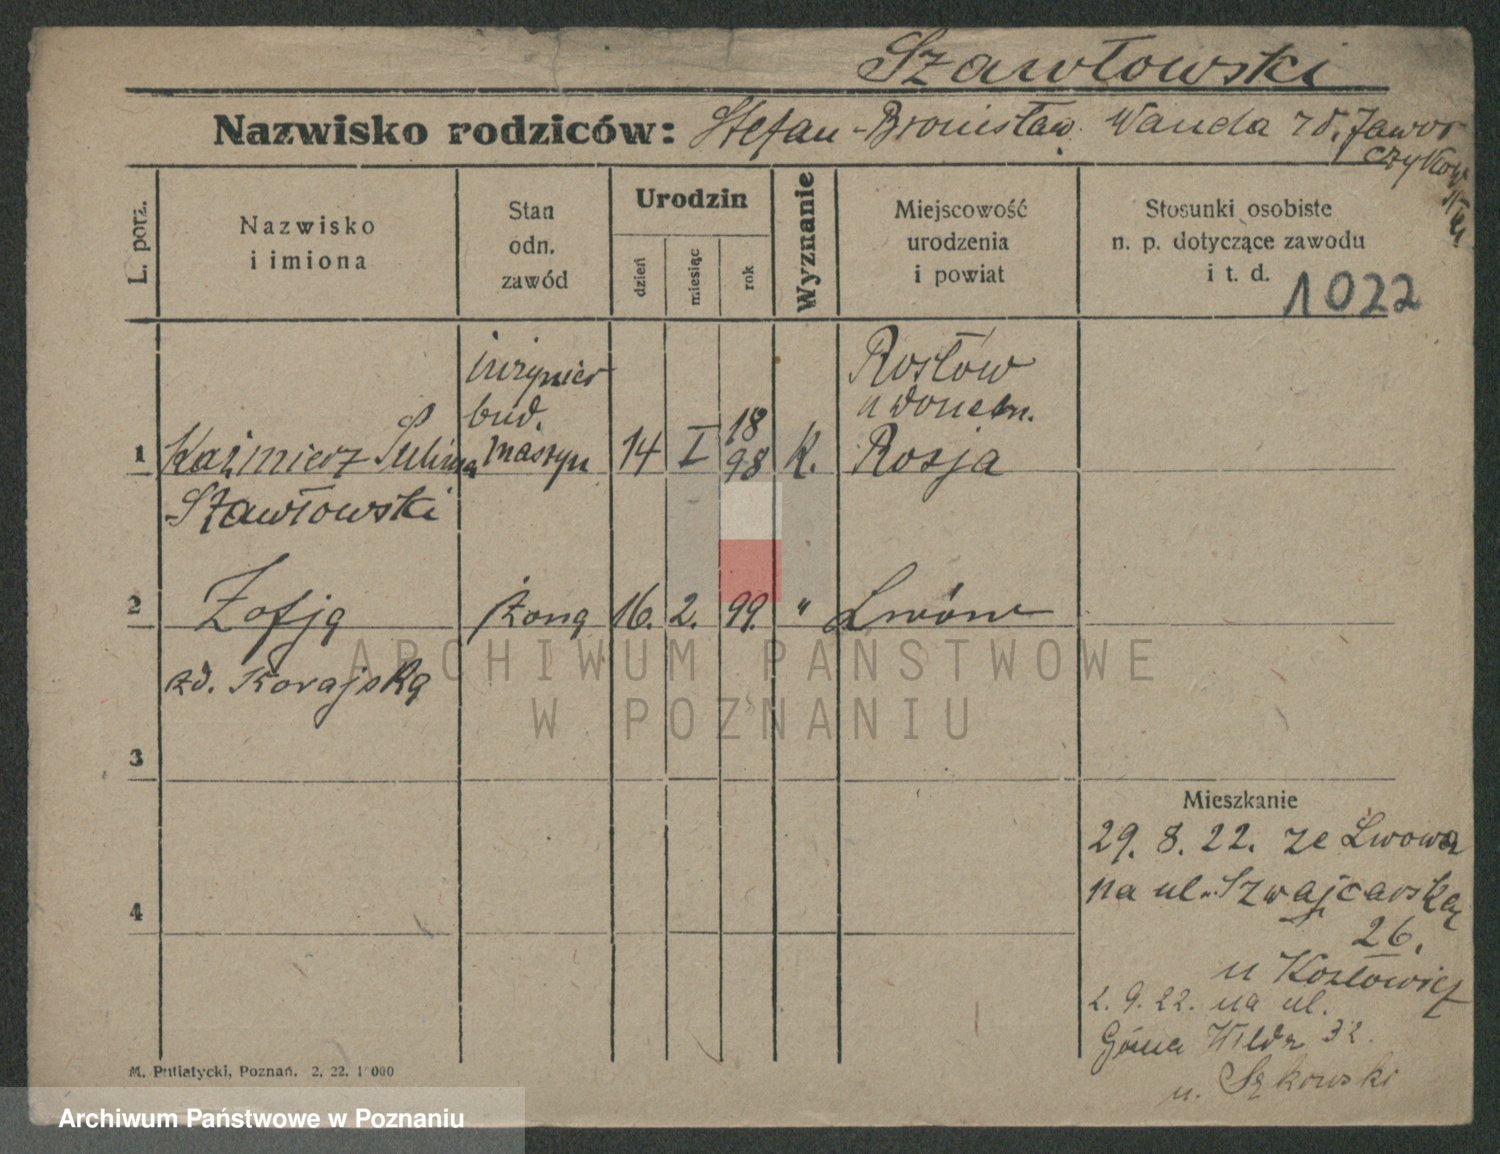 Szawłowski
Nazwisko rodziców: Stefan-Bronisław. Wanda zd. Jawor
czykow
L. porz.
Nazwisko
i imiona
Stan
odn.
zawód
Urodzin
dzień
miesiąc
rok
Wyznanie
Miejscowość
urodzenia
i powiat
Stosunki osobiste
n. p. dotyczące zawodu
i t. d.
1022
1
Kaźmierz Sulima
Szawłowski
inżynier
bud.
maszyn
14
I
18
98
R.
Rostów
n donem.
Rosja
2
Zofja
zd. Korajska
żona
16.
2.
99.
"
Lwów
3
4
Mieszkanie
29. 8. 22. ze Lwowa
na ul. Szwajcarską
26.
u Kozłowicz
2. 9. 22. na ul.
Górna Wilda 32.
u.
M. Putiatycki, Poznań. 2. 22. 1000
ARCHIWUM PAŃSTWOWE
W POZNANIU
Archiwum Państwowe w Poznaniu